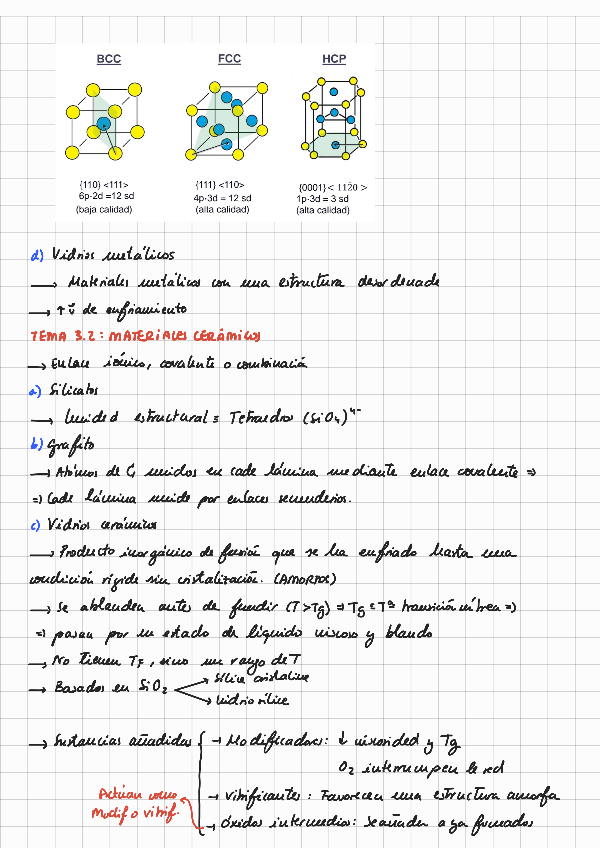 BCC FCC HCP
{110} <111> {111} <110> {0001} < 11̅2̅0 >
6p·2d =12 sd 4p·3d = 12 sd 1p·3d = 3 sd
(baja calidad) (alta calidad) (alta calidad)
d) Vidrios metálicos
→ Materiales metálicos con una estructura desordenada
→ ↑ v̄ de enfriamiento
TEMA 3.2: MATERIALES CERÁMICOS
→ Enlace iónico, covalente o combinación
a) Silicatos
→ Unidad estructural ≡ Tetraedros (SiO4)4-
b) Grafito
→ Átomos de C, unidos en cada lámina mediante enlace covalente ⇒
⇒ Cada lámina unida por enlaces secundarios.
c) Vidrios cerámicos
→ Producto inorgánico de fusión que se ha enfriado hasta una
condición rígida sin cristalización. (AMORFOS)
→ Se ablandan antes de fundir (T>Tg) ⇒ Tg ≡ Tª transición vítrea ⇒)
⇒ pasan por un estado de líquido viscoso y blando
→ No tienen TF, sino un rango de T
→ Basados en SiO2 → Sílice cristalina
→ Vidrio sílice
→ Sustancias añadidas { → Modificadores: ↓ viscosidad y Tg
O2 interrumpen la red
→ Vitrificantes: Favorecen una estructura amorfa
→ Óxidos intermedios: Se añaden a ya formados
Actúan como
Modif o vitrif.